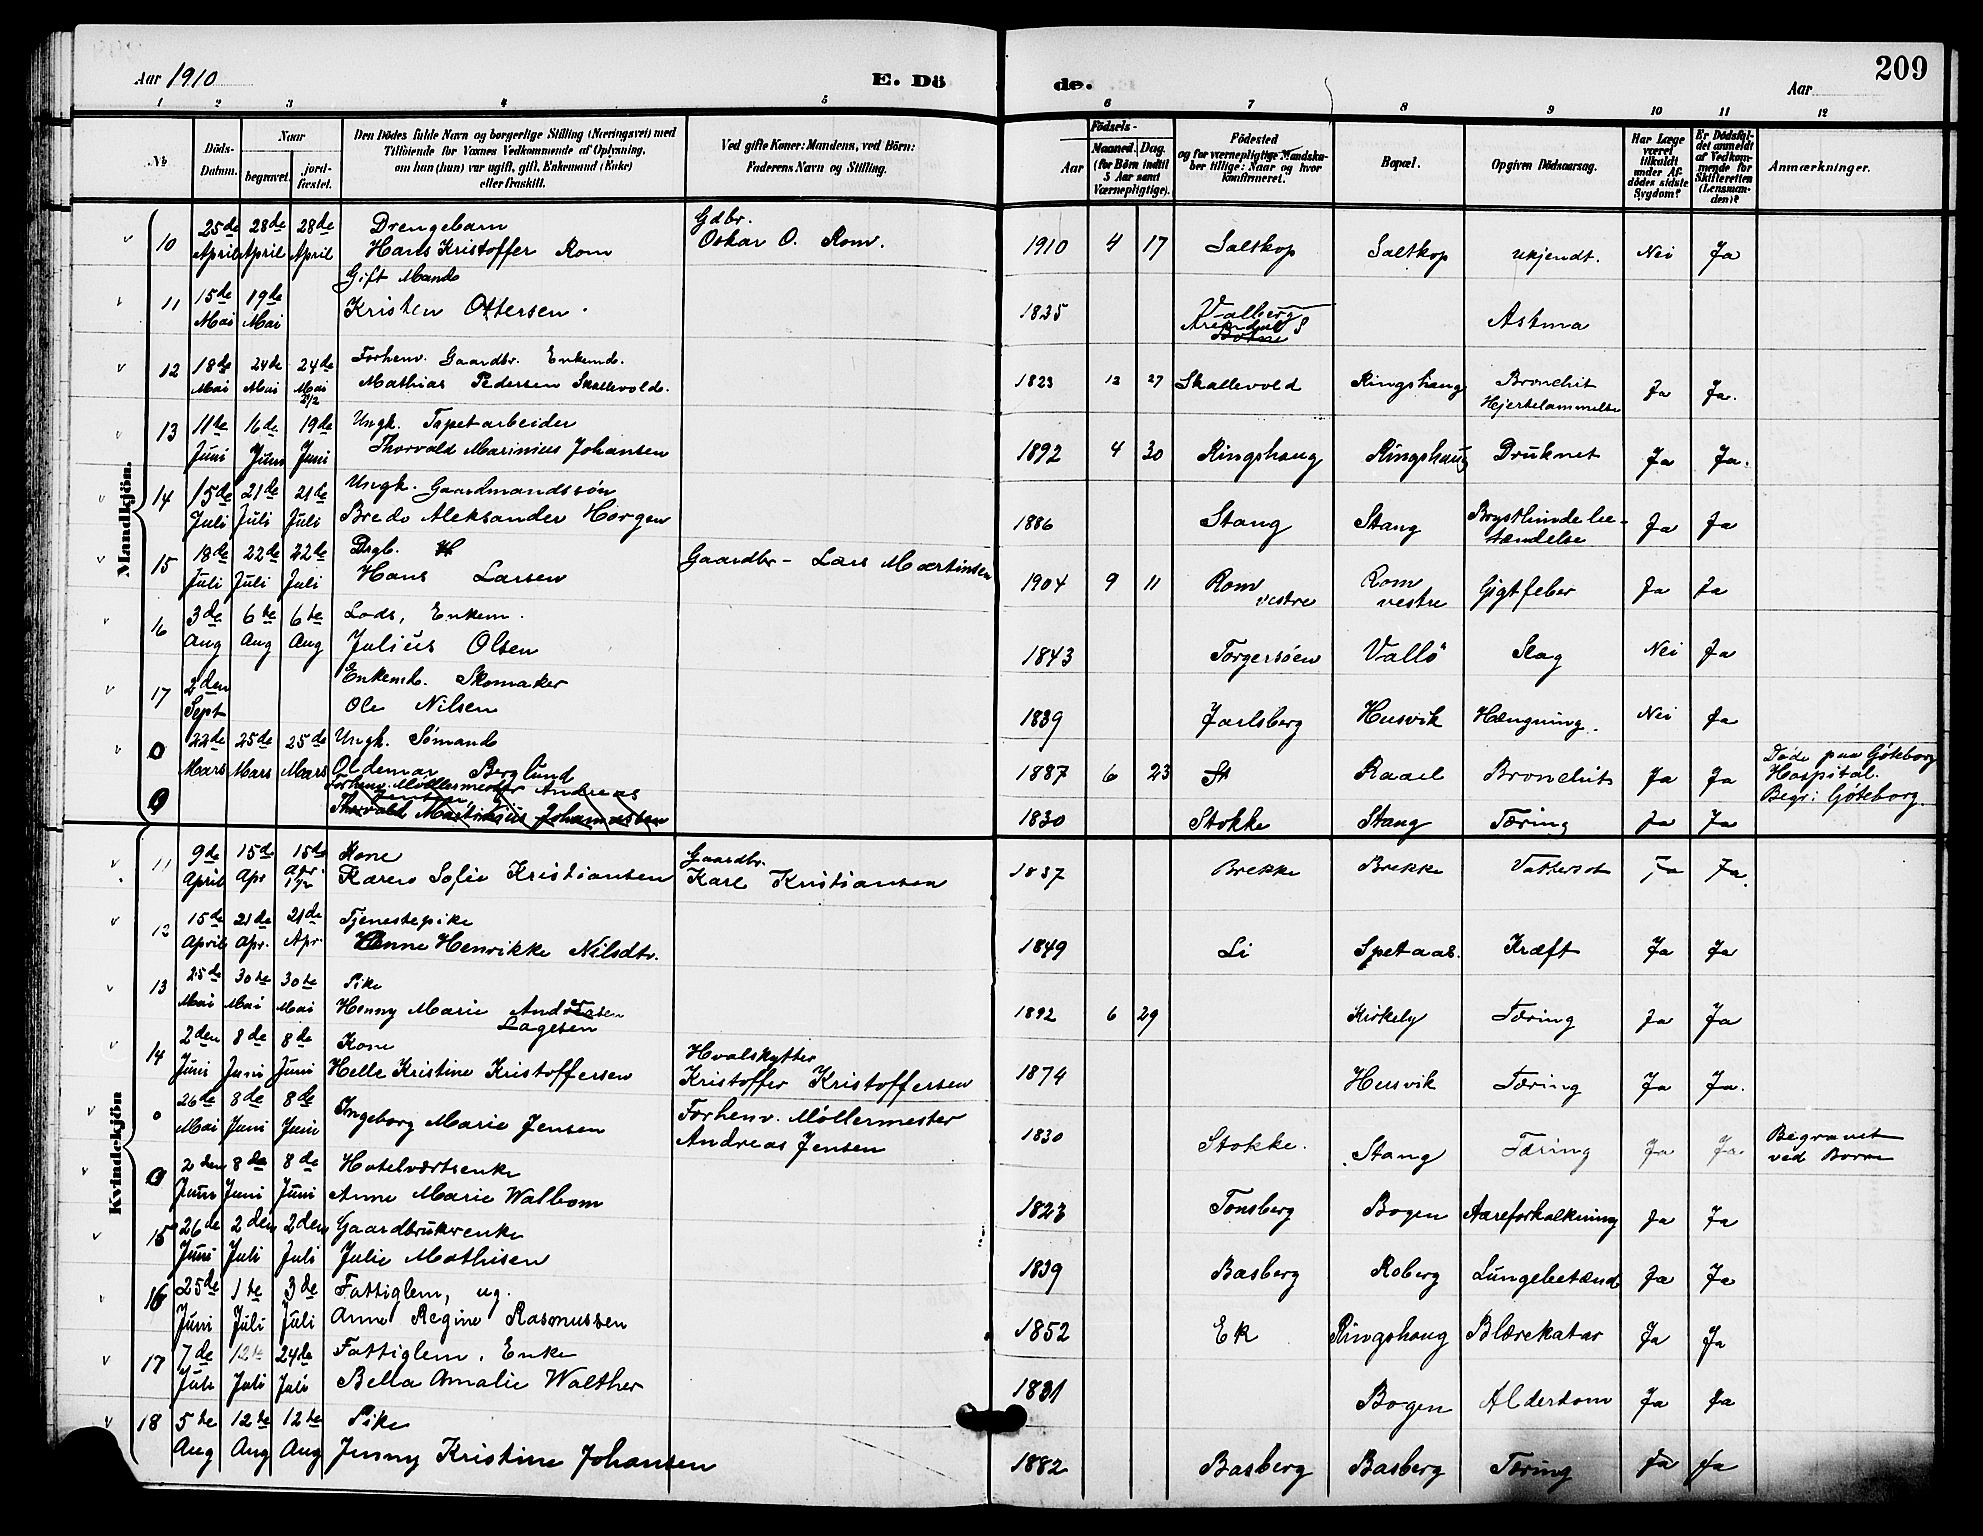 Aar 1910
E. Döde.
209
Aar
1 2 3 4 5 6 7 8 9 10 11 12
No
Döds-Datum.
Naar
begravet.
jordfæstet.
Den Dödes fulde Navn og borgerlige Stilling (Næringsvei) med
Tilföiende for Voxnes Vedkommende af Oplysning,
om han (hun) var ugift, gift, Enkemand (Enke)
eller fraskilt.
Ved gifte Koner: Mandens, ved Börn:
Faderens Navn og Stilling.
Födsels-
Aar
Maaned. Dag.
(for Börn indtil
5 Aar samt
Værnepligtige).
Födested
og for værnepligtige Mandska-
ber tillige: Naar og hvor
konfirmeret.
Bopæl.
Opgiven Dödsaarsag.
Har Læge
været
tilkaldt
under Af-
dödes sidste
Sygdom?
Er Dödsfal-
det anmeldt
af Vedkom-
mende for
Skifteretten
(Lensman-
den)?
Anmærkninger.
Mandkjön.
10 25de April 28de April 28de April Drengebarn Hans Kristoffer Rom Gdbr. Oskar O. Rom. 1910 4 17 Saltkop Saltkop ukjendt. Nei Ja
11 15de Mai 19de Mai Gift Mand Kristen Ottersen. 1835 Valberg Arendal S Botne Astma
12 18de Mai 24de Mai 24de Mai Forhenv. Gaardbr. Enkemd. Mathias Pedersen Skallevold. 1823 12 27 Skallevold Ringshaug Bronchit Hjertelammelse Ja Ja.
13 11te Juni 16de Juni 19de Juni Ungk. Tapetarbeider Thorvald Marinius Johansen 1892 4 30 Ringshaug Ringshaug Druknet Ja Ja.
14 15de Juli 21de Juli 21de Juli Ungk. Gaardmandssøn Bredo Aleksander Horgen 1886 Stang Stang Brysthindebe-tændelse Ja Ja
15 18de Juli 22de Juli 22de Juli Drgb. Hans Larsen Gaardbr - Lars Martinsen 1904 9 11 Rom vestre Rom vestre Gigtfeber Ja Ja
16 3de Aug 6te Aug 6te Aug Lods, Enkem. Julius Olsen 1843 Torgersøen Vallö Slag Nei Ja
17 2den Sept Enkemd. Skomaker Ole Nilsen 1839 Jarlsberg Husvik Hængning. Nei Ja
0 22de Mars 25de Mars 25de Mars Ungk. Sømand Oldemar Berglund 1887 6 23 St Raael Bronchit Ja Ja Døde paa Göteborg Hospital. Begr. i Göteborg.
0 Forhenv. Møllermester Andreas Jensen Thorvald Martinius Johannessen 1830 Stokke Stang Tæring Ja Ja
Kvindekjön
11 9de April 15de Apr 15de Apr Kone Karen Sofie Kristiansen Gaardbr. Karl Kristiansen 1837 Brekke Brekke Vattersot Ja Ja.
12 15de April 21de Apr. 21de Apr. Tjenestepike Anne Henrikke Nilsdtr. 1849 Li Spetaas. Kræft Ja Ja
13 25de Mai 30te Mai 30te Mai Pike Henny Marie Andersen Lagesen 1892 6 29 Kirkely Tæring Ja Ja
14 2den Juni 8de Juni 8de Juni Kone Helle Kristine Kristoffersen Hvalskytter Kristoffer Kristoffersen 1874 Husvik Tæring Ja Ja.
0 26de Mai 8de Juni 8de Juni Ingeborg Marie Jensen Forhenv. Møllermester Andreas Jensen 1830 Stokke. Stang Tæring Ja Ja. Begravet ved Borre
0 2den Juni 8de Juni 8de Juni Hotelværtsenke Anne Marie Walbom 1823 Tønsberg Bogen Aareforkalkning Ja Ja
15 26de Juni 2den Juli 2den Juli Gaardbrukrenke Julie Mathisen 1839 Basberg Roberg Lungebetænd Ja Ja
16 25de Juni 1te Juli 3de Juli Fattiglem, ug. Anne Regine Rasmussen 1852 Ek Ringshaug Blærekatar Ja Ja
17 7de Juli 12te Juli 24de Juli Fattiglem. Enke Bella Amalie Walther 1831 Bogen Alderdom Ja Ja
18 5te Aug 12te Aug 12te Aug Pike Jenny Kristine Johansen 1882 Basberg Basberg Tæring Ja Ja